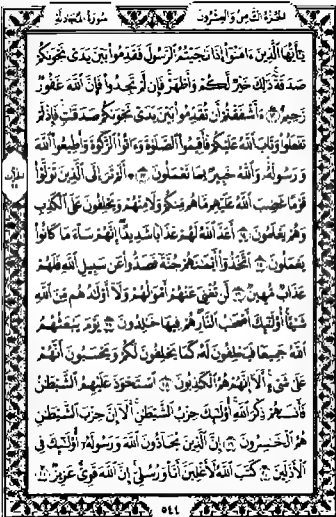 الجزء الثامن والعشرون سورة المجادلة
يَٰٓأَيُّهَا ٱلَّذِينَ ءَامَنُوٓاْ إِذَا نَٰجَيۡتُمُ ٱلرَّسُولَ فَقَدِّمُواْ بَيۡنَ يَدَيۡ نَجۡوَىٰكُمۡ
صَدَقَةٗۚ ذَٰلِكَ خَيۡرٞ لَّكُمۡ وَأَطۡهَرُۚ فَإِن لَّمۡ تَجِدُواْ فَإِنَّ ٱللَّهَ غَفُورٞ
رَّحِيمٌ ١٢ ءَأَشۡفَقۡتُمۡ أَن تُقَدِّمُواْ بَيۡنَ يَدَيۡ نَجۡوَىٰكُمۡ صَدَقَٰتٖۚ فَإِذۡ لَمۡ
تَفۡعَلُواْ وَتَابَ ٱللَّهُ عَلَيۡكُمۡ فَأَقِيمُواْ ٱلصَّلَوٰةَ وَءَاتُواْ ٱلزَّكَوٰةَ وَأَطِيعُواْ ٱللَّهَ
وَرَسُولَهُۥۚ وَٱللَّهُ خَبِيرُۢ بِمَا تَعۡمَلُونَ ١٣ ۞ أَلَمۡ تَرَ إِلَى ٱلَّذِينَ تَوَلَّوۡاْ
قَوۡمًا غَضِبَ ٱللَّهُ عَلَيۡهِم مَّا هُم مِّنكُمۡ وَلَا مِنۡهُمۡ وَيَحۡلِفُونَ عَلَى ٱلۡكَذِبِ
وَهُمۡ يَعۡلَمُونَ ١٤ أَعَدَّ ٱللَّهُ لَهُمۡ عَذَابٗا شَدِيدًاۖ إِنَّهُمۡ سَآءَ مَا كَانُواْ
يَعۡمَلُونَ ١٥ ٱتَّخَذُوٓاْ أَيۡمَٰنَهُمۡ جُنَّةٗ فَصَدُّواْ عَن سَبِيلِ ٱللَّهِ فَلَهُمۡ
عَذَابٞ مُّهِينٞ ١٦ لَّن تُغۡنِيَ عَنۡهُمۡ أَمۡوَٰلُهُمۡ وَلَآ أَوۡلَٰدُهُم مِّنَ ٱللَّهِ
شَيۡـًٔاۚ أُوْلَٰٓئِكَ أَصۡحَٰبُ ٱلنَّارِۖ هُمۡ فِيهَا خَٰلِدُونَ ١٧ يَوۡمَ يَبۡعَثُهُمُ
ٱللَّهُ جَمِيعٗا فَيَحۡلِفُونَ لَهُۥ كَمَا يَحۡلِفُونَ لَكُمۡ وَيَحۡسَبُونَ أَنَّهُمۡ
عَلَىٰ شَيۡءٍۚ أَلَآ إِنَّهُمۡ هُمُ ٱلۡكَٰذِبُونَ ١٨ ٱسۡتَحۡوَذَ عَلَيۡهِمُ ٱلشَّيۡطَٰنُ
فَأَنسَىٰهُمۡ ذِكۡرَ ٱللَّهِۚ أُوْلَٰٓئِكَ حِزۡبُ ٱلشَّيۡطَٰنِۚ أَلَآ إِنَّ حِزۡبَ ٱلشَّيۡطَٰنِ
هُمُ ٱلۡخَٰسِرُونَ ١٩ إِنَّ ٱلَّذِينَ يُحَآدُّونَ ٱللَّهَ وَرَسُولَهُۥٓ أُوْلَٰٓئِكَ فِي
ٱلۡأَذَلِّينَ ٢٠ كَتَبَ ٱللَّهُ لَأَغۡلِبَنَّ أَنَا۠ وَرُسُلِيٓۚ إِنَّ ٱللَّهَ قَوِيٌّ عَزِيزٞ ٢١
٥٤٤